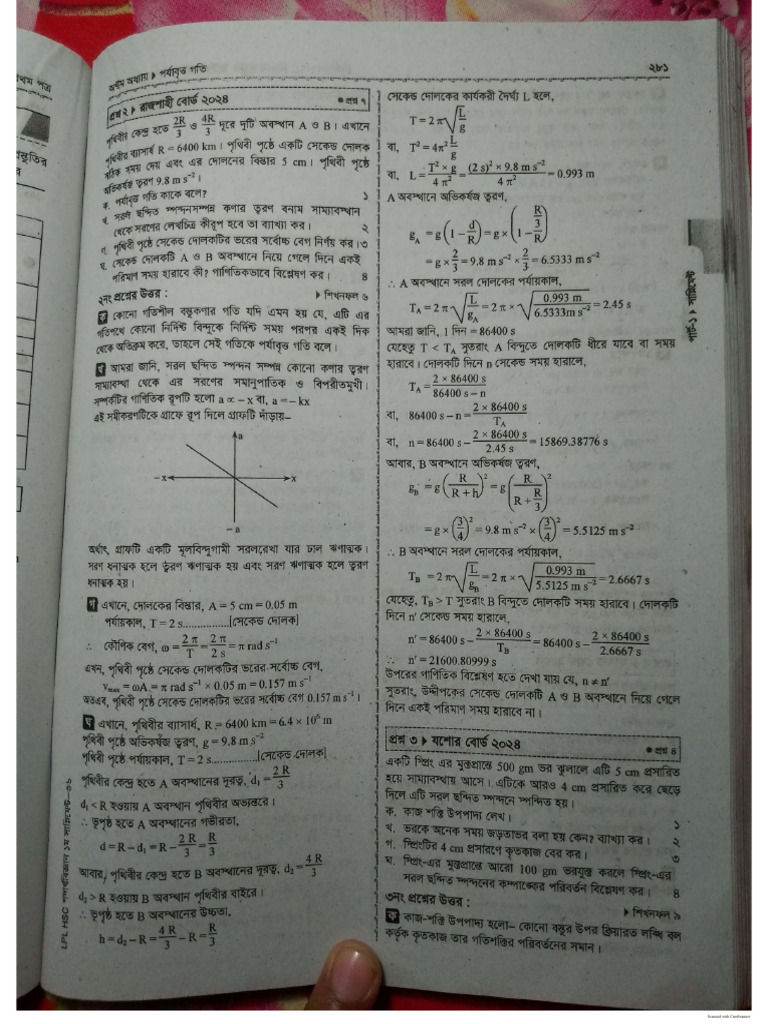 প্রথম অধ্যায় ▶ পর্যাবৃত্ত গতি
২৮১
প্রশ্ন ২ ▶ রাজশাহী বোর্ড ২০২৪
● প্রশ্ন ৭
পৃথিবীর কেন্দ্র হতে 2R/3 ও 4R/3 দূরে দুটি অবস্থান A ও B। এখানে
পৃথিবীর ব্যাসার্ধ R = 6400 km। পৃথিবী পৃষ্ঠে একটি সেকেন্ড দোলক
সঠিক সময় দেয় এবং এর দোলনের বিস্তার 5 cm। পৃথিবী পৃষ্ঠে
অভিকর্ষজ ত্বরণ 9.8 m s⁻²।
ক. পর্যাবৃত্ত গতি কাকে বলে? ১
খ. সরল ছন্দিত স্পন্দনসম্পন্ন কণার ত্বরণ বনাম সাম্যাবস্থান
থেকে সরণের লেখচিত্র কীরূপ হবে তা ব্যাখ্যা কর। ২
গ. পৃথিবী পৃষ্ঠে সেকেন্ড দোলকটির ভরের সর্বোচ্চ বেগ নির্ণয় কর। ৩
ঘ. সেকেন্ড দোলকটি A ও B অবস্থানে নিয়ে গেলে দিনে একই
পরিমাণ সময় হারাবে কী? গাণিতিকভাবে বিশ্লেষণ কর। ৪
২নং প্রশ্নের উত্তর :
▶ শিখনফল ৬
ক কোনো গতিশীল বস্তুকণার গতি যদি এমন হয় যে, এটি এর
গতিপথে কোনো নির্দিষ্ট বিন্দুকে নির্দিষ্ট সময় পরপর একই দিক
থেকে অতিক্রম করে, তাহলে সেই গতিকে পর্যাবৃত্ত গতি বলে।
খ আমরা জানি, সরল ছন্দিত স্পন্দন সম্পন্ন কোনো কণার ত্বরণ
সাম্যাবস্থা থেকে এর সরণের সমানুপাতিক ও বিপরীতমুখী।
সম্পর্কটির গাণিতিক রূপটি হলো a ∝ – x বা, a = – kx
এই সমীকরণটিকে গ্রাফে রূপ দিলে গ্রাফটি দাঁড়ায়–
a
– x
x
– a
অর্থাৎ গ্রাফটি একটি মূলবিন্দুগামী সরলরেখা যার ঢাল ঋণাত্মক।
সরণ ধনাত্মক হলে ত্বরণ ঋণাত্মক হয় এবং সরণ ঋণাত্মক হলে ত্বরণ
ধনাত্মক হয়।
গ এখানে, দোলকের বিস্তার, A = 5 cm = 0.05 m
পর্যায়কাল, T = 2 s...............[সেকেন্ড দোলক]
∴ কৌণিক বেগ, ω = 2π/T = 2π/2 s = π rad s⁻¹
এখন, পৃথিবী পৃষ্ঠে সেকেন্ড দোলকটির ভরের সর্বোচ্চ বেগ,
vₘₐₓ = ωA = π rad s⁻¹ × 0.05 m = 0.157 m s⁻¹
অতএব, পৃথিবী পৃষ্ঠে সেকেন্ড দোলকটির ভরের সর্বোচ্চ বেগ 0.157 m s⁻¹।
ঘ এখানে, পৃথিবীর ব্যাসার্ধ, R = 6400 km = 6.4 × 10⁶ m
পৃথিবী পৃষ্ঠে অভিকর্ষজ ত্বরণ, g = 9.8 m s⁻²
পৃথিবী পৃষ্ঠে পর্যায়কাল, T = 2 s...............[সেকেন্ড দোলক]
পৃথিবীর কেন্দ্র হতে A অবস্থানের দূরত্ব, d₁ = 2R/3
d₁ < R হওয়ায় A অবস্থান পৃথিবীর অভ্যন্তরে।
∴ ভূপৃষ্ঠ হতে A অবস্থানের গভীরতা,
d = R – d₁ = R – 2R/3 = R/3
আবার, পৃথিবীর কেন্দ্র হতে B অবস্থানের দূরত্ব, d₂ = 4R/3
d₂ > R হওয়ায় B অবস্থান পৃথিবীর বাইরে।
∴ ভূপৃষ্ঠ হতে B অবস্থানের উচ্চতা,
h = d₂ – R = 4R/3 – R = R/3
সেকেন্ড দোলকের কার্যকরী দৈর্ঘ্য L হলে,
T = 2π√(L/g)
বা, T² = 4π² L/g
বা, L = T² × g/4π² = (2 s)² × 9.8 m s⁻²/4π² = 0.993 m
A অবস্থানে অভিকর্ষজ ত্বরণ,
g_A = g(1 – d/R) = g × (1 – (R/3)/R)
= g × 2/3 = 9.8 m s⁻² × 2/3 = 6.5333 m s⁻²
∴ A অবস্থানে সরল দোলকের পর্যায়কাল,
T_A = 2π√(L/g_A) = 2π × √(0.993 m/6.5333m s⁻²) = 2.45 s
আমরা জানি, 1 দিন = 86400 s
যেহেতু T < T_A সুতরাং A বিন্দুতে দোলকটি ধীরে যাবে বা সময়
হারাবে। দোলকটি দিনে n সেকেন্ড সময় হারালে,
T_A = 2 × 86400 s/86400 s – n
বা, 86400 s – n = 2 × 86400 s/T_A
বা, n = 86400 s – 2 × 86400 s/2.45 s = 15869.38776 s
আবার, B অবস্থানে অভিকর্ষজ ত্বরণ,
g_B = g(R/R + h)² = g(R/(R + R/3))²
= g × (3/4)² = 9.8 m s⁻² × (3/4)² = 5.5125 m s⁻²
∴ B অবস্থানে সরল দোলকের পর্যায়কাল,
T_B = 2π√(L/g_B) = 2π × √(0.993 m/5.5125 m s⁻²) = 2.6667 s
যেহেতু, T_B > T সুতরাং B বিন্দুতে দোলকটি সময় হারাবে। দোলকটি
দিনে n′ সেকেন্ড সময় হারালে,
n′ = 86400 s – 2 × 86400 s/T_B = 86400 s – 2 × 86400 s/2.6667 s
∴ n′ = 21600.80999 s
উপরের গাণিতিক বিশ্লেষণ হতে দেখা যায় যে, n ≠ n′
সুতরাং, উদ্দীপকের সেকেন্ড দোলকটি A ও B অবস্থানে নিয়ে গেলে
দিনে একই পরিমাণ সময় হারাবে না।
প্রশ্ন ৩ ▶ যশোর বোর্ড ২০২৪
● প্রশ্ন ৪
একটি স্প্রিং এর মুক্তপ্রান্তে 500 gm ভর ঝুলালে এটি 5 cm প্রসারিত
হয়ে সাম্যাবস্থায় আসে। এটিকে আরও 4 cm প্রসারিত করে ছেড়ে
দিলে এটি সরল ছন্দিত স্পন্দনে স্পন্দিত হয়।
ক. কাজ শক্তি উপপাদ্য লেখ। ১
খ. ভরকে অনেক সময় জড়তাভর বলা হয় কেন? ব্যাখ্যা কর। ২
গ. স্প্রিংটির 4 cm প্রসারণে কৃতকাজ বের কর। ৩
ঘ. স্প্রিং-এর মুক্তপ্রান্তে আরো 100 gm ভরযুক্ত করলে স্প্রিং-এর
সরল ছন্দিত স্পন্দনের কম্পাঙ্কের পরিবর্তন বিশ্লেষণ কর। ৪
৩নং প্রশ্নের উত্তর :
▶ শিখনফল ৯
ক কাজ-শক্তি উপপাদ্য হলো– কোনো বস্তুর উপর ক্রিয়ারত লব্ধি বল
কর্তৃক কৃতকাজ তার গতিশক্তির পরিবর্তনের সমান।
পার্ট-১ ▶ সাজেশন্স
Scanned with CamScanner